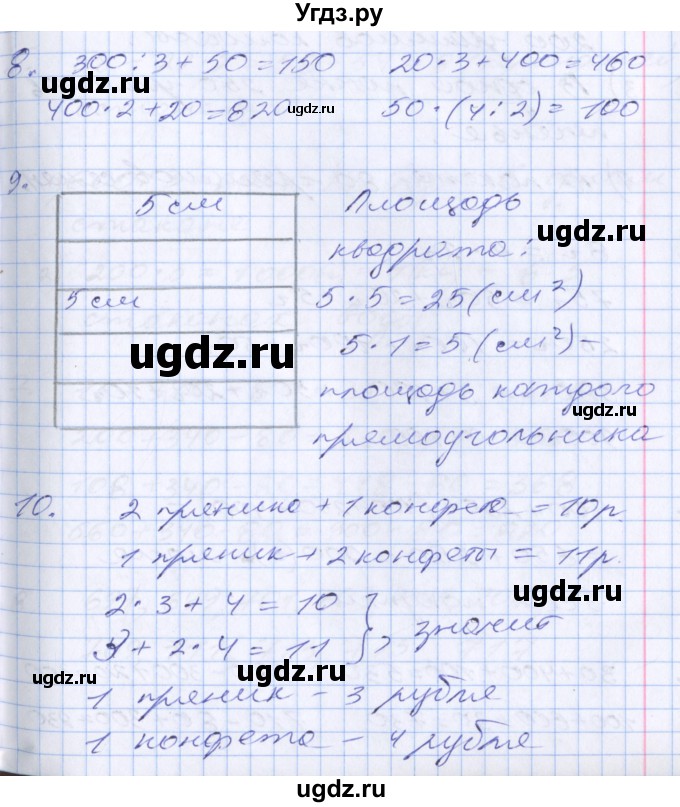 Угдз.ру
8. 300 : 3 + 50 = 150 20 · 3 + 400 = 460
400 · 2 + 20 = 820 50 · (4 : 2) = 100
9. 5 см
5 см
Площадь
квадрата:
5 · 5 = 25 (см²)
5 · 1 = 5 (см²) –
площадь каждого
прямоугольника
10. 2 пряника + 1 конфета = 10 р.
1 пряник + 2 конфеты = 11 р.
2 · 3 + 4 = 10
3 + 2 · 4 = 11 } , значит
1 пряник – 3 рубля
1 конфета – 4 рубля
ugdz.ru
ugdz.ru
ugdz.ru
ugdz.ru
ugdz.ru
ugdz.ru
ugdz.ru
ugdz.ru
ugdz.ru
ugdz.ru
ugdz.ru
ugdz.ru